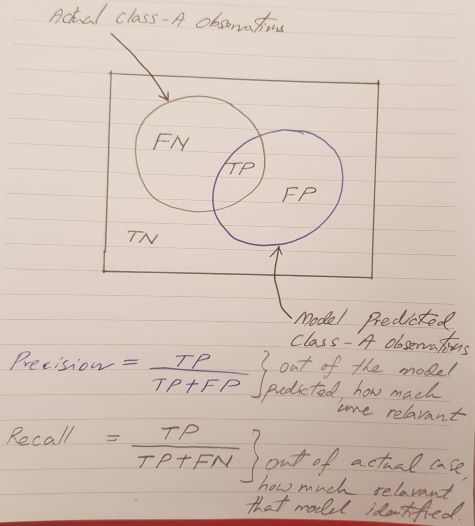 Actual class-A Observations
FN
TP
FP
TN
Model Predicted
Class-A Observations
Precision = TP / TP+FP } out of the model
predicted, how much
were relevant
Recall = TP / TP+FN } out of actual case,
how much relevant
that model identified.